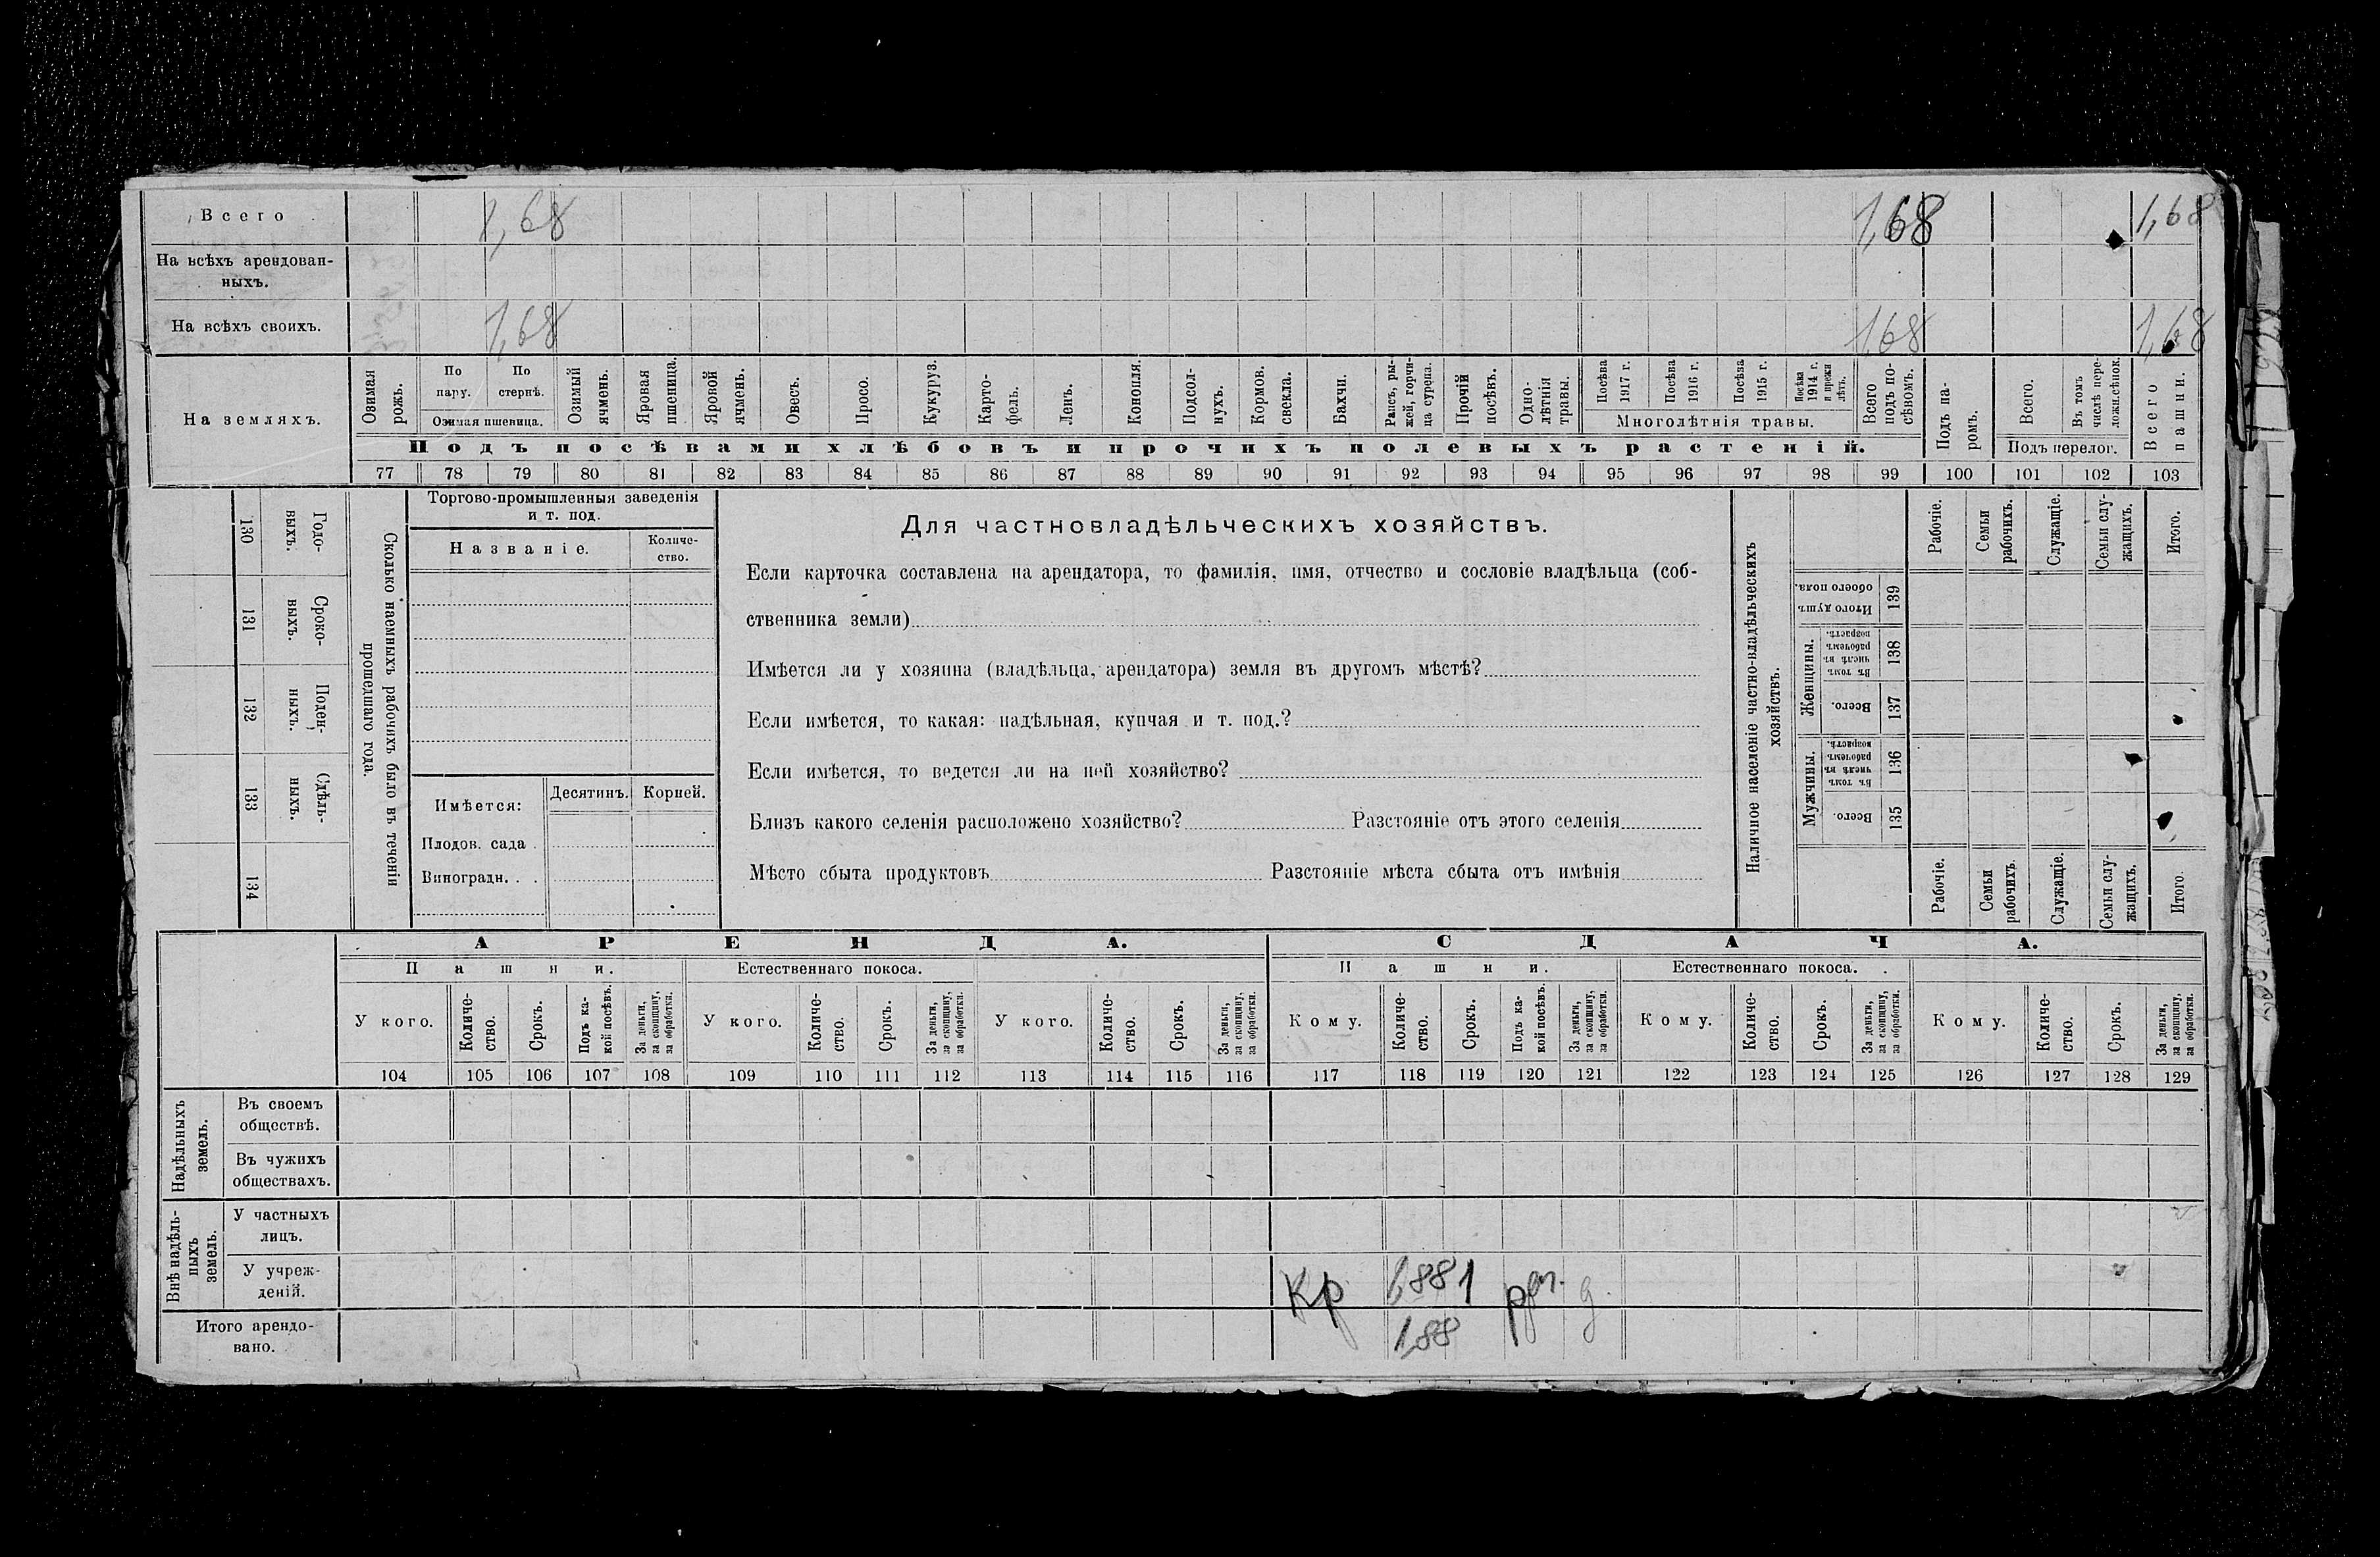 Всего 1,68 1,68 1,68
На всѣхъ арендован-
ныхъ.
На всѣхъ своихъ. 1,68 1,68 1,68
На земляхъ.
Озимая рожь.
По пару.
По стернѣ.
Озимая пшеница.
Озимый ячмень.
Яровая пшеница.
Яровой ячмень.
Овесъ.
Просо.
Кукуруз.
Карто-
фель.
Ленъ.
Конопля.
Подсол-
нухъ.
Кормов. свекла.
Бахчи.
Рапсъ, ры-
жей, горчи-
ца сурепа.
Прочій посѣвъ.
Одно-
лѣтнія травы.
Посѣва 1917 г.
Посѣва 1916 г.
Посѣва 1915 г.
Посѣва 1914 г. и прежн лѣтъ.
Многолѣтнія травы.
Всего подъ по-
сѣвомъ.
Подъ па-
ромъ.
Всего.
Въ томъ числѣ пере-
ложн.сѣнок.
Подъ перелог.
Всего пашни.
Подъ посѣвами хлѣбовъ и прочихъ полевыхъ растеній.
77 78 79 80 81 82 83 84 85 86 87 88 89 90 91 92 93 94 95 96 97 98 99 100 101 102 103
Сколько наемныхъ рабочихъ было въ теченіи
прошедшаго года.
Годо-
выхъ.
130
Сроко-
выхъ.
131
Поден-
ныхъ.
132
Сдѣль-
ныхъ.
133
134
Торгово-промышленныя заведенія
и т. под.
Названіе.
Количе-
ство.
Имѣется: Десятинъ. Корней.
Плодов. сада .
Виноградн. . .
Для частновладѣльческихъ хозяйствъ.
Если карточка составлена на арендатора, то фамилія, имя, отчество и сословіе владѣльца (соб-
ственника земли)
Имѣется ли у хозяина (владѣльца, арендатора) земля въ другомъ мѣстѣ?
Если имѣется, то какая: надѣльная, купчая и т. под.?
Если имѣется, то ведется ли на ней хозяйство?
Близъ какого селенія расположено хозяйство? Разстояніе отъ этого селенія
Мѣсто сбыта продуктовъ Разстояніе мѣста сбыта отъ имѣнія
Наличное населеніе частно-владѣльческихъ
хозяйствъ.
Рабочіе.
Семьи рабочихъ.
Служащіе.
Семьи слу-
жащихъ.
Итого.
Итого душъ обоего пола.
139
Женщины.
Въ томъ числѣ въ рабочемъ возрастѣ.
138
Всего.
137
Мужчины.
Въ томъ числѣ въ рабочемъ возрастѣ.
136
Всего.
135
Рабочіе.
Семьи рабочихъ.
Служащіе.
Семьи слу-
жащихъ.
Итого.
АРЕНДА. СДАЧА.
Пашни. Естественнаго покоса. Пашни. Естественнаго покоса.
У кого.
Количе-
ство.
Срокъ.
Подъ ка-
кой посѣвъ.
За деньги, за скопщину, за обработки.
У кого.
Количе-
ство.
Срокъ.
За деньги, за скопщину, за обработки.
У кого.
Количе-
ство.
Срокъ.
За деньги, за скопщину, за обработки.
Кому.
Количе-
ство.
Срокъ.
Подъ ка-
кой посѣвъ.
За деньги, за скопщину, за обработки.
Кому.
Количе-
ство.
Срокъ.
За деньги, за скопщину, за обработки.
Кому.
Количе-
ство.
Срокъ.
За деньги, за скопщину, за обработки.
104 105 106 107 108 109 110 111 112 113 114 115 116 117 118 119 120 121 122 123 124 125 126 127 128 129
Надѣльныхъ земель.
Въ своемъ
обществѣ.
Въ чужихъ
обществахъ.
Внѣ надѣль-
ныхъ земель.
У частныхъ
лицъ.
У учреж-
деній.
Кр 1,88 1
Итого арендо-
вано.
1,88